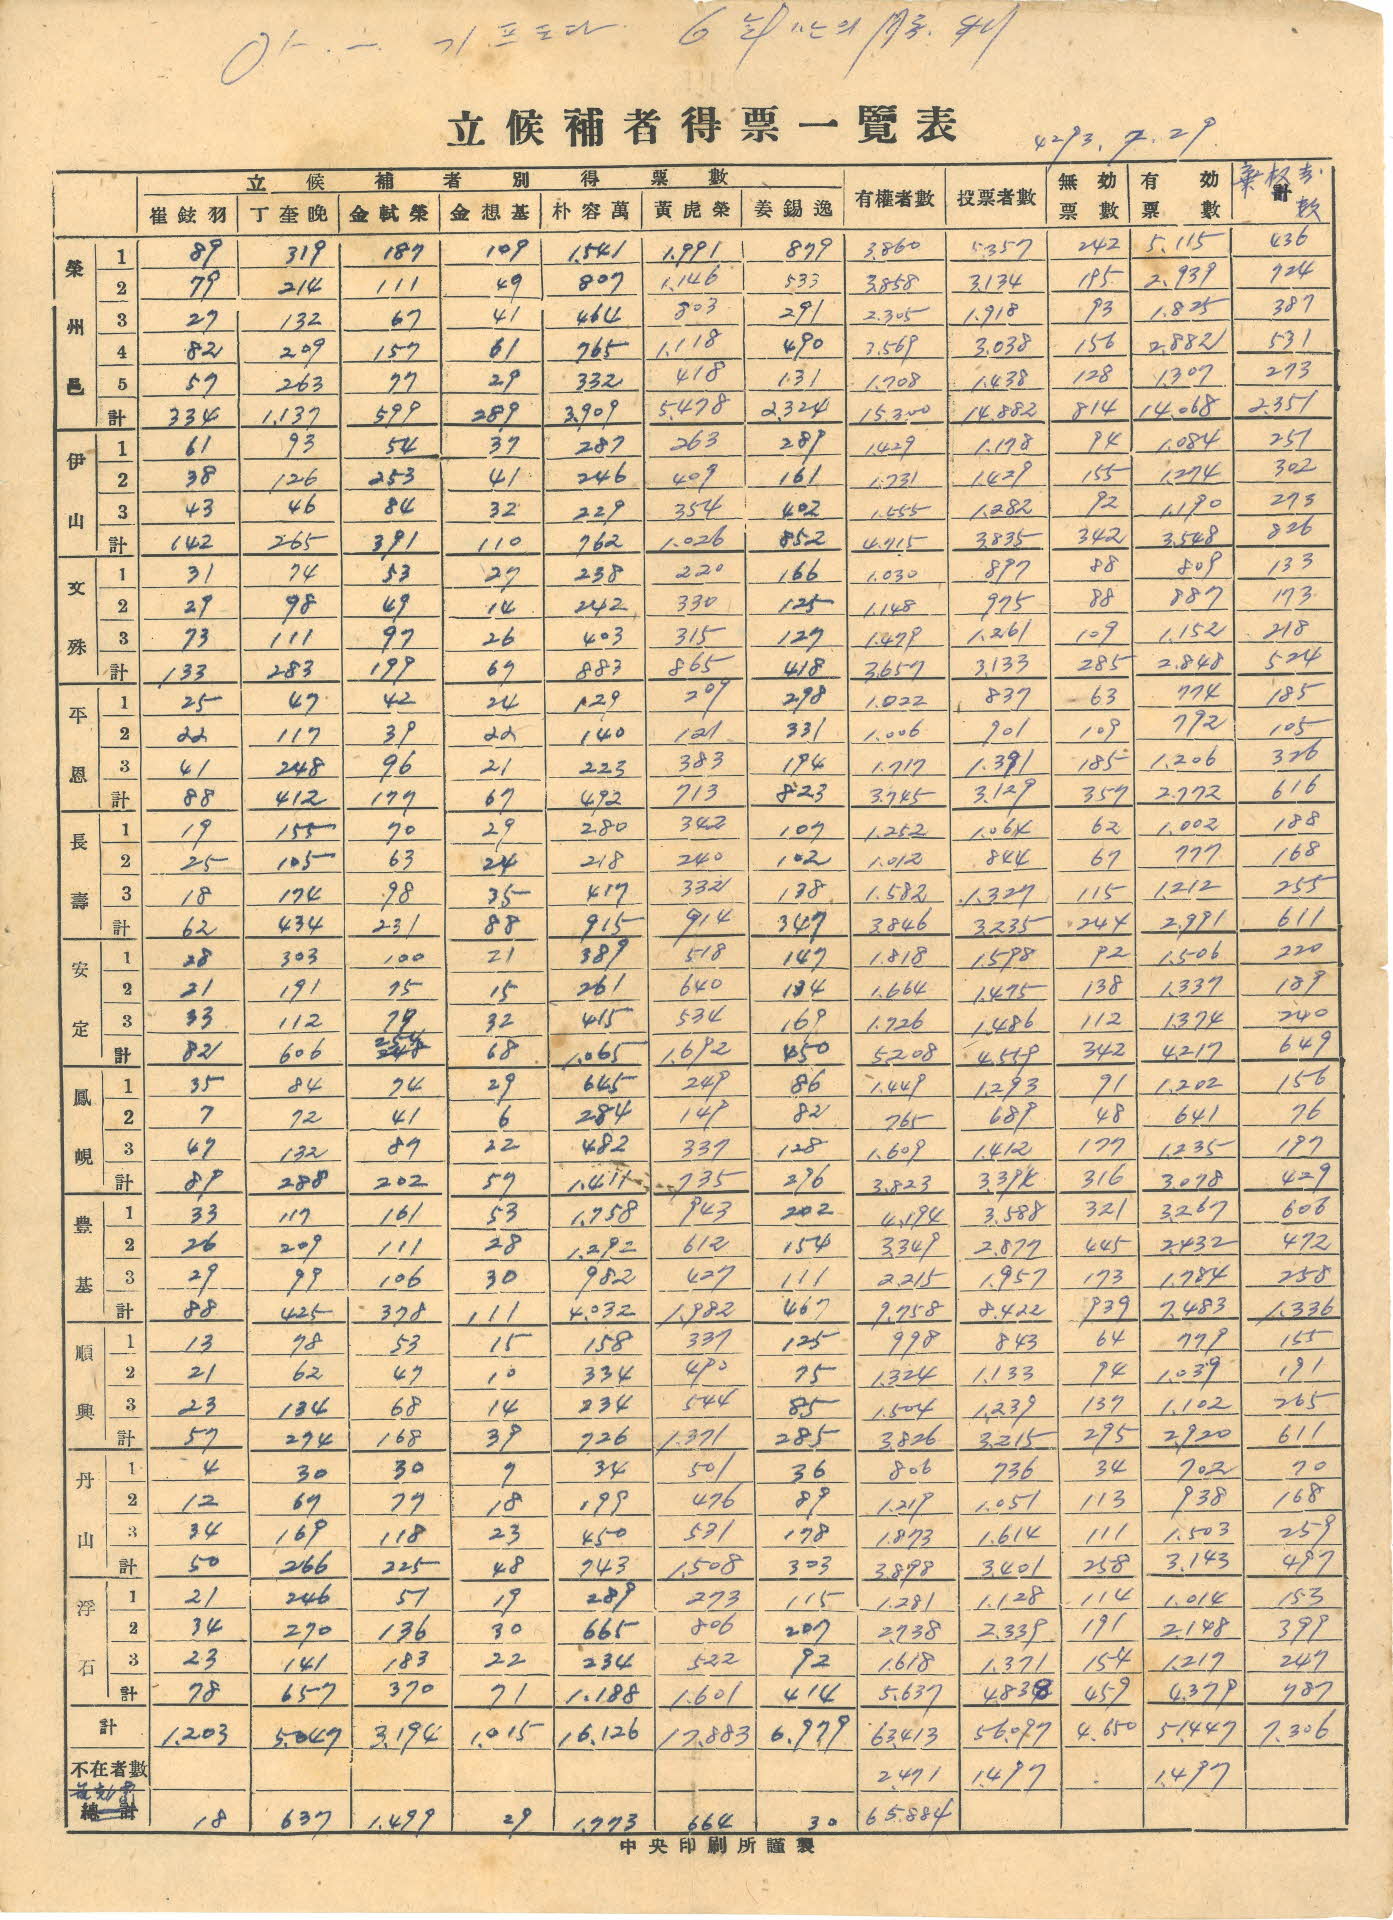 立候補者得票一覽表
4293. 7. 29.
立候補者別得票數 有權者數 投票者數 無効票數 有効票數 計
崔鉉羽 丁奎晩 金軾榮 金想基 朴容萬 黃虎榮 姜錫逸
榮州邑 1 89 319 187 109 1.541 1.991 879 3.860 5.357 242 5.115 436
2 79 214 111 49 807 1.146 533 3.858 3.134 195 2.939 724
3 27 132 67 41 464 803 291 2.305 1.918 93 1.825 387
4 82 209 157 61 765 1.118 490 3.569 3.038 156 2.882 531
5 57 263 77 29 332 418 131 1.708 1.438 128 1.307 273
計 334 1.137 599 289 3.909 5.478 2.324 15.300 14.882 814 14.068 2.351
伊山 1 61 93 54 37 287 263 289 1.429 1.178 94 1.084 251
2 38 126 253 41 246 409 161 1.731 1.429 155 1.274 302
3 43 46 84 32 229 354 402 1.555 1.282 92 1.190 273
計 142 265 391 110 762 1.026 852 4.715 3.835 342 3.548 826
文殊 1 31 74 53 27 238 220 166 1.030 897 88 809 133
2 29 98 49 14 242 330 125 1.148 975 88 887 173
3 73 111 97 26 403 315 127 1.479 1.261 109 1.152 218
計 133 283 199 67 883 865 418 3.657 3.133 285 2.848 524
平恩 1 25 47 42 24 129 209 298 1.022 837 63 774 185
2 22 117 39 22 140 121 331 1.006 901 109 792 105
3 41 248 96 21 223 383 194 1.717 1.391 185 1.206 326
計 88 412 177 67 492 713 823 3.745 3.129 357 2.772 616
長壽 1 19 155 70 29 280 342 107 1.252 1.064 62 1.002 188
2 25 105 63 24 218 240 102 1.012 844 67 777 168
3 18 174 98 35 417 332 138 1.582 1.327 115 1.212 255
計 62 434 231 88 915 914 347 3.846 3.235 244 2.991 611
安定 1 28 303 100 21 389 518 147 1.818 1.598 92 1.506 220
2 21 191 75 15 261 640 134 1.664 1.475 138 1.337 189
3 33 112 79 32 415 534 169 1.726 1.486 112 1.374 240
計 82 606 254 248 68 1.065 1.692 450 5.208 4.559 342 4.217 649
鳳峴 1 35 84 74 29 645 249 86 1.449 1.293 91 1.202 156
2 7 72 41 6 284 149 82 765 689 48 641 76
3 47 132 87 22 482 337 128 1.609 1.412 177 1.235 197
計 89 288 202 57 1.411 735 296 3.823 3.394 316 3.078 429
豊基 1 33 117 161 53 1.758 943 202 4.194 3.588 321 3.267 606
2 26 209 111 28 1.292 612 154 3.349 2.877 445 2.432 472
3 29 99 106 30 982 427 111 2.215 1.957 173 1.784 258
計 88 425 378 111 4.032 1.982 467 9.758 8.422 939 7.483 1.336
順興 1 13 78 53 15 158 337 125 998 843 64 779 155
2 21 62 47 10 334 490 75 1.324 1.133 94 1.039 191
3 23 134 68 14 234 544 85 1.504 1.239 137 1.102 265
計 57 274 168 39 726 1.371 285 3.826 3.215 295 2.920 611
丹山 1 4 30 30 7 34 501 36 806 736 34 702 70
2 12 67 77 18 199 476 89 1.219 1.051 113 938 168
3 34 169 118 23 450 531 178 1.873 1.614 111 1.503 259
計 50 266 225 48 743 1.508 303 3.898 3.401 258 3.143 497
浮石 1 21 246 51 19 289 273 115 1.281 1.128 114 1.014 153
2 34 270 136 30 665 806 207 2.738 2.339 191 2.148 399
3 23 141 183 22 234 522 92 1.618 1.371 154 1.217 247
計 78 657 370 71 1.188 1.601 414 5.637 4.838 459 4.379 787
計 1.203 5.047 3.194 1.015 16.126 17.883 6.979 63.413 56.097 4.650 51.447 7.306
不在者數 2.471 1.497 1.497
總計 18 637 1.499 29 1.773 664 30 65.884
中央印刷所謹製